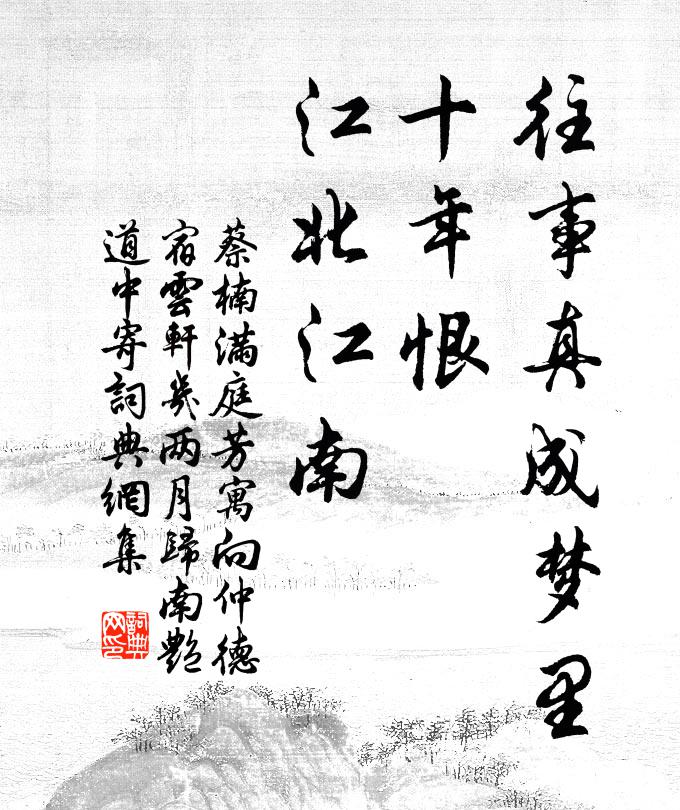 往事真成梦里
十年恨
江北江南
蔡楠满庭芳寓向仲德
宿雲軒幾两月歸南艷
道中寄詞典網集
詞典
网印